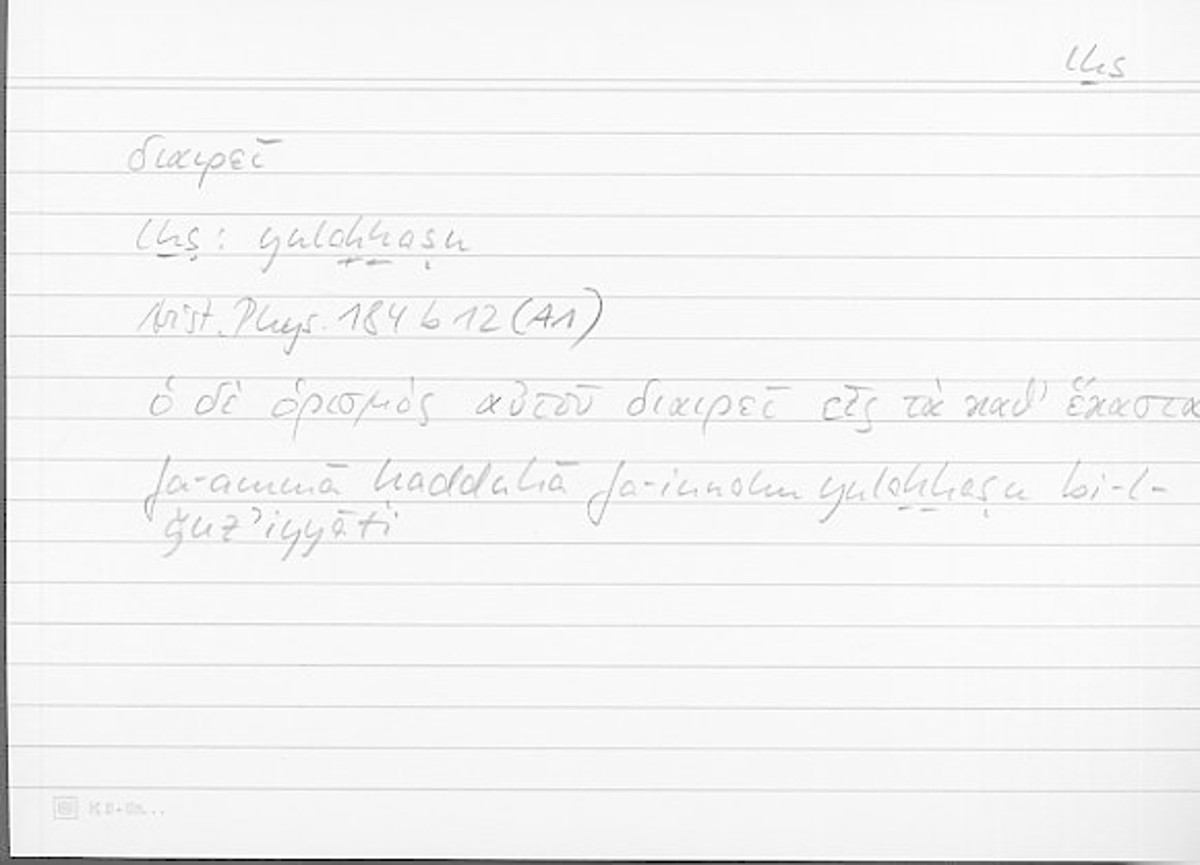 lḫṣ
διαιρεῖ
lḫṣ: yulaḫḫaṣu
Arist. Phys. 184 b 12 (A1)
ὁ δὲ ὁρισμὸς αὐτοῦ διαιρεῖ εἰς τὰ καθ' ἕκαστα
fa-ammā ḥadduhā fa-innahu yulaḫḫaṣu bi-l-
ǧuz’iyyāti